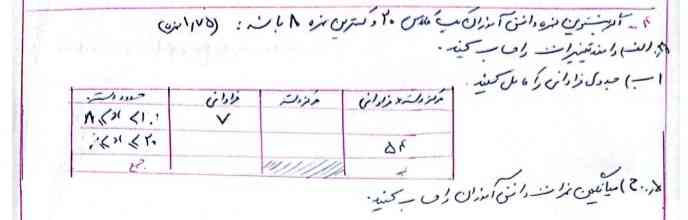 ۴- اگر بیشترین نمره دانش آموزان یک کلاس ۲۰ و کمترین نمره ۸ باشد: (۱,۷۵ نمره)
الف) دامنه تغییرات را حساب کنید.
ب) جدول فراوانی را کامل کنید.
حدود دسته فراوانی مرکز دسته مرکز دسته × فراوانی
۸ ≤ x < ۱۰ ۷
≤ x ≤ ۲۰ ۵۴
جمع
ج) میانگین نمرات دانش آموزان را حساب کنید.